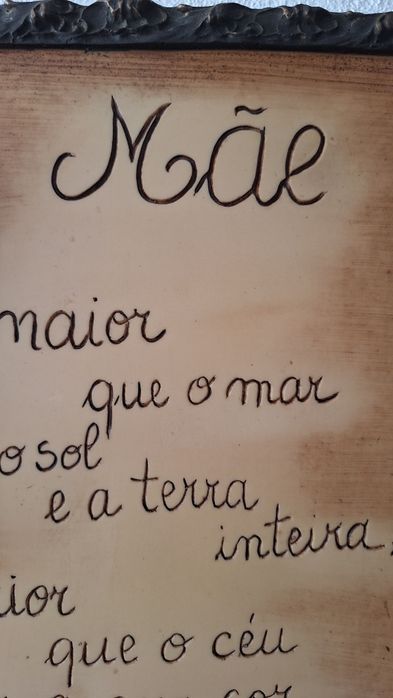 Mãe
maior
que o mar
o sol
e a terra
inteira,
ior
que o céu